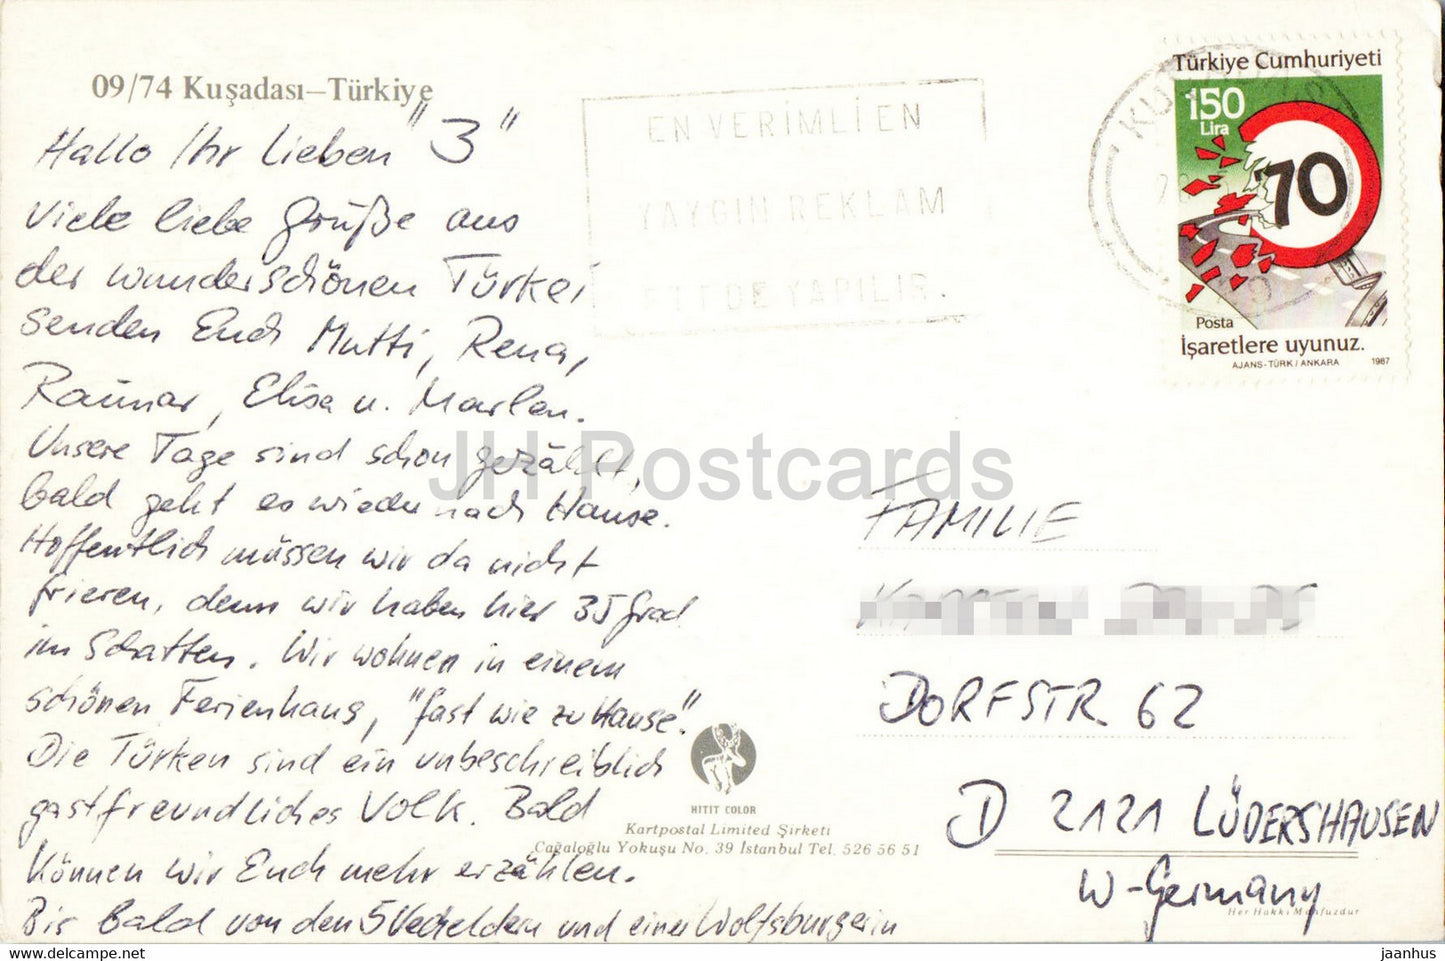 09/74 Kuşadası–Türkiye
Hallo Ihr Lieben "3"
Viele liebe Grüße aus
der wunderschönen Türkei
senden Euch Mutti, Rena,
Raimar, Elisa u. Marlen.
Unsere Tage sind schon gezählt,
bald geht es wieder nach Hause.
Hoffentlich müssen wir da nicht
frieren, denn wir haben hier 35 Grad
im Schatten. Wir wohnen in einem
schönen Ferienhaus, "fast wie zu Hause".
Die Türken sind ein unbeschreiblich
gastfreundliches Volk. Bald
können wir Euch mehr erzählen.
Bis bald von den 5 und einer Wolfsburgerin
EN VERİMLİ EN
YAYGIN REKLAM
PTT DE YAPILIR.
Türkiye Cumhuriyeti
150
Lira
70
Posta
İşaretlere uyunuz.
AJANS-TÜRK / ANKARA 1987
JH Postcards
FAMILIE
DORFSTR. 62
D 2121 LÜDERSHAUSEN
W-Germany
HITIT COLOR
Kartpostal Limited Şirketi
Cağaloğlu Yokuşu No. 39 İstanbul Tel. 526 56 51
Her Hakkı Mahfuzdur
www.delcampe.net
jaanhus